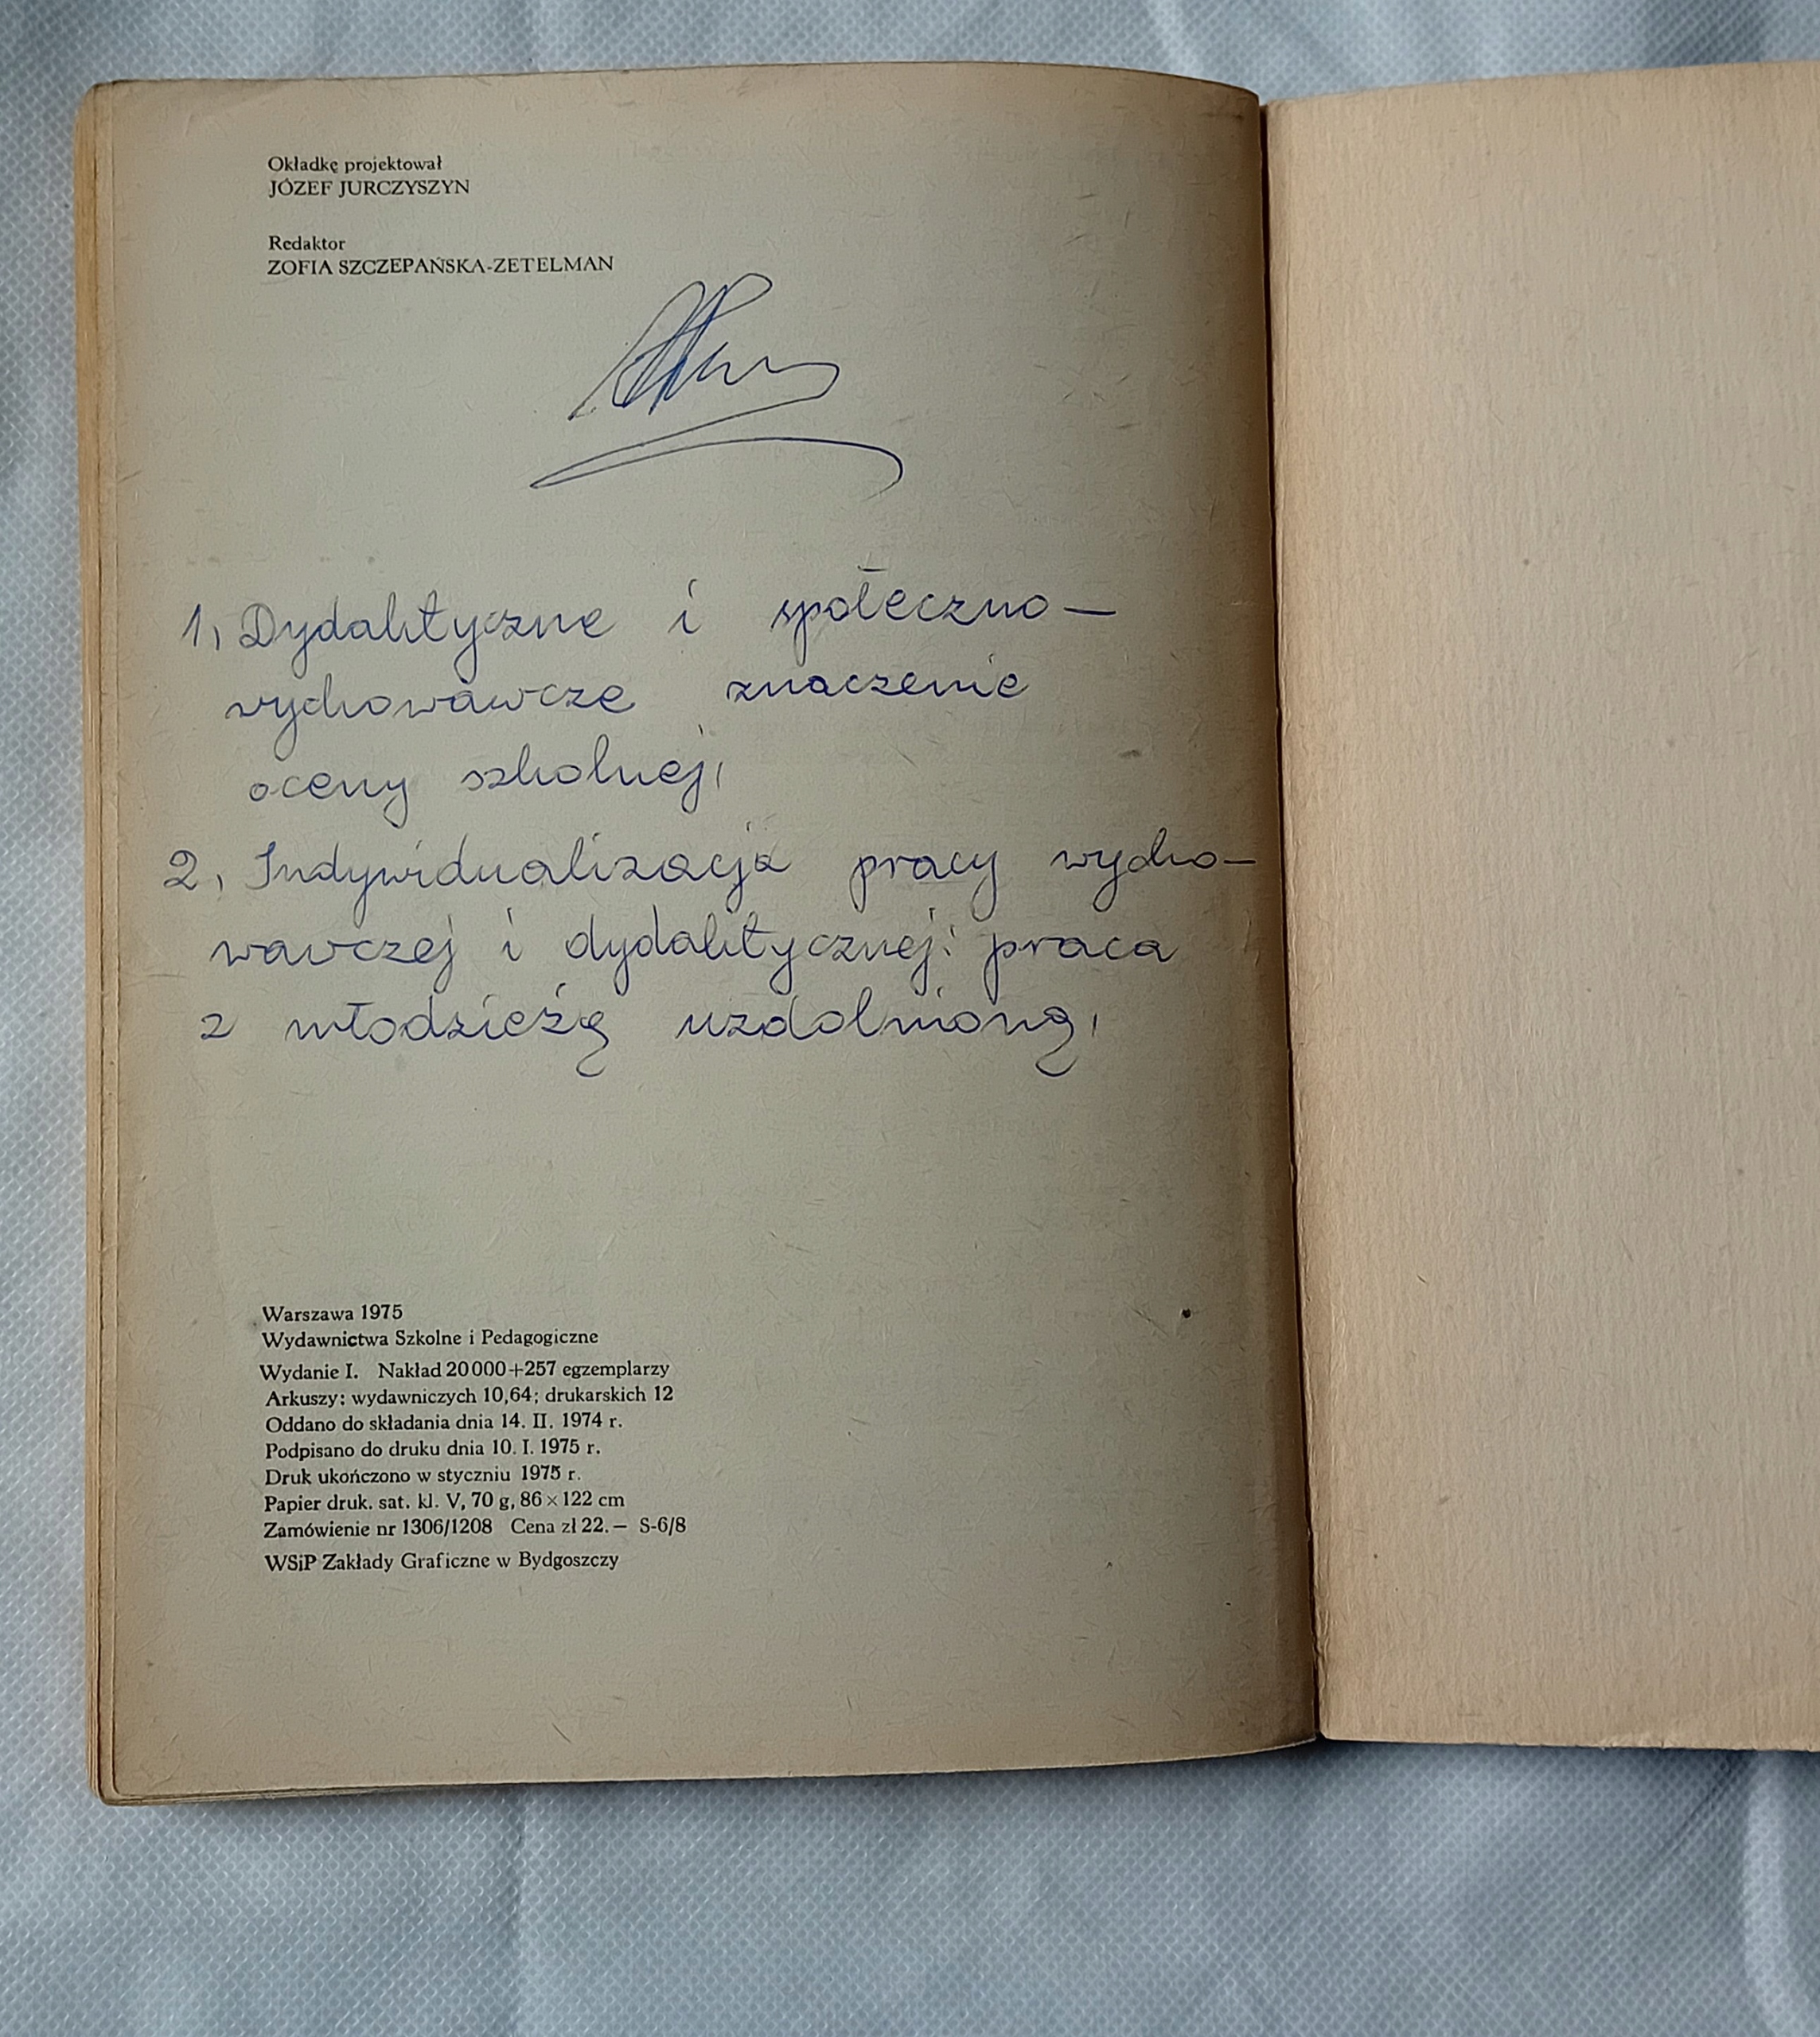 Okładkę projektował
JÓZEF JURCZYSZYN
Redaktor
ZOFIA SZCZEPAŃSKA-ZETELMAN
1, Dydaktyczne i społeczno—
wychowawcze znaczenie
oceny szkolnej,
2, Indywidualizacja pracy wycho—
wawczej i dydaktycznej: praca
z młodzieżą uzdolnioną,
Warszawa 1975
Wydawnictwa Szkolne i Pedagogiczne
Wydanie I. Nakład 20000+257 egzemplarzy
Arkuszy: wydawniczych 10,64; drukarskich 12
Oddano do składania dnia 14. II. 1974 r.
Podpisano do druku dnia 10. I. 1975 r.
Druk ukończono w styczniu 1975 r.
Papier druk. sat. kl. V, 70 g, 86×122 cm
Zamówienie nr 1306/1208 Cena zł 22.— S-6/8
WSiP Zakłady Graficzne w Bydgoszczy